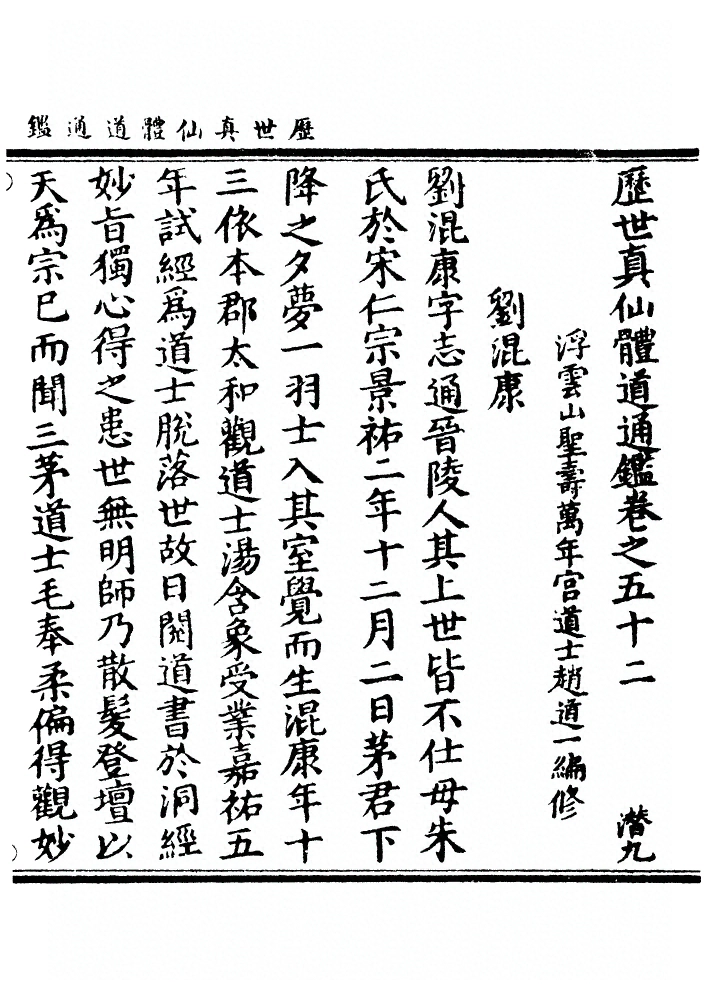 歷世真仙體道通鑑
歷世真仙體道通鑑卷之五十二 潛九
浮雲山聖壽萬年宮道士趙道一編修
劉混康
劉混康字志通晉陵人其上世皆不仕母朱
氏於宋仁宗景祐二年十二月二日茅君下
降之夕夢一羽士入其室覺而生混康年十
三依本郡太和觀道士湯含象受業嘉祐五
年試經爲道士脫落世故日閱道書於洞經
妙旨獨心得之患世無明師乃散髮登壇以
天爲宗已而聞三茅道士毛奉柔偏得觀妙